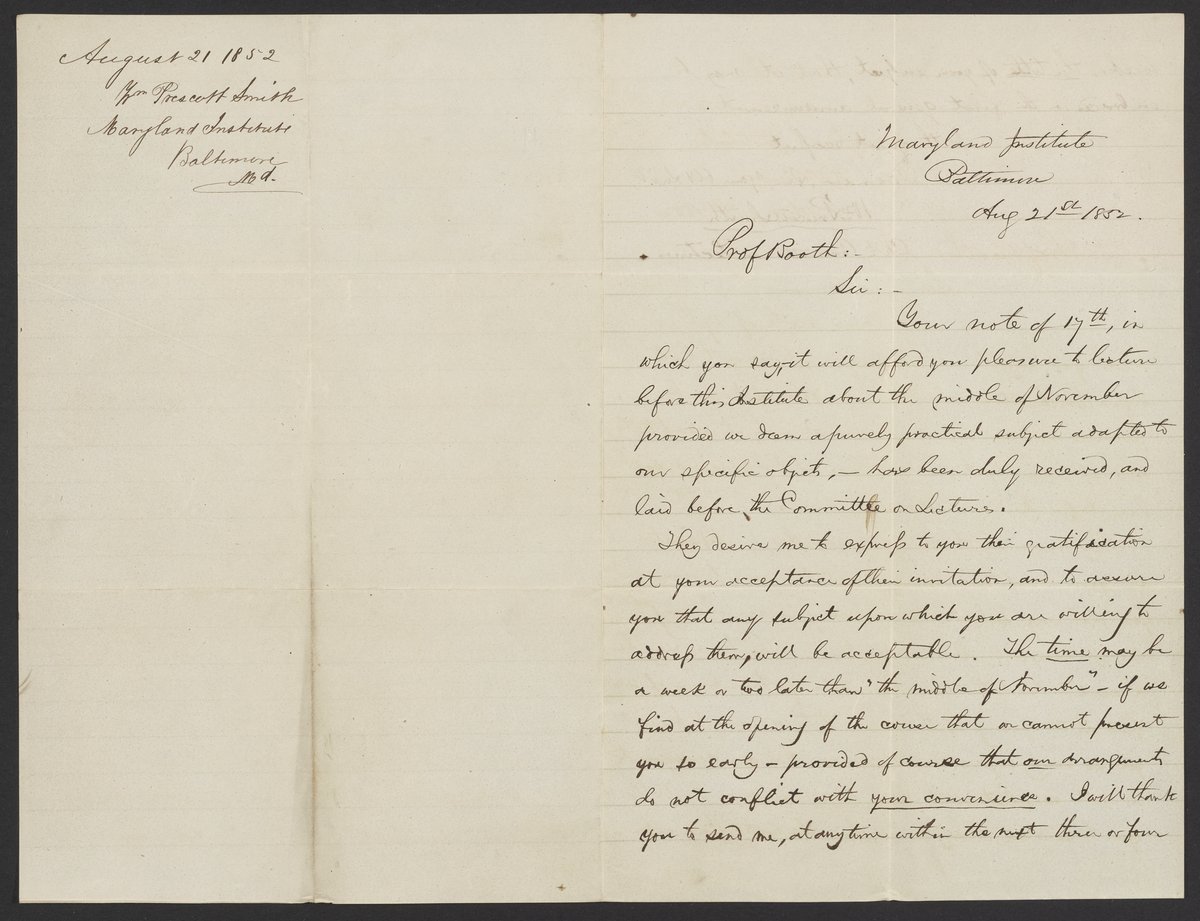 August 21 1852
Wm Prescott Smith
Maryland Institute
Baltimore
Md.
Maryland Institute
Baltimore
Aug 21st 1852.
Prof Booth:-
Sir:-
Your note of 17th, in
which you say, it will afford you pleasure to lecture
before this Institute about the middle of November
provided we deem a purely practical subject adapted to
our specific objects, - has been duly received, and
laid before the Committee on Lectures.
They desire me to express to you their gratification
at your acceptance of their invitation, and to assure
you that any subject upon which you are willing to
address them, will be acceptable. The time may be
a week or two later than "the middle of November" - if we
find at the opening of the course that we cannot present
you so early - provided of course that our arrangements
do not conflict with your convenience. I will thank
you to send me, at any time within the next three or four